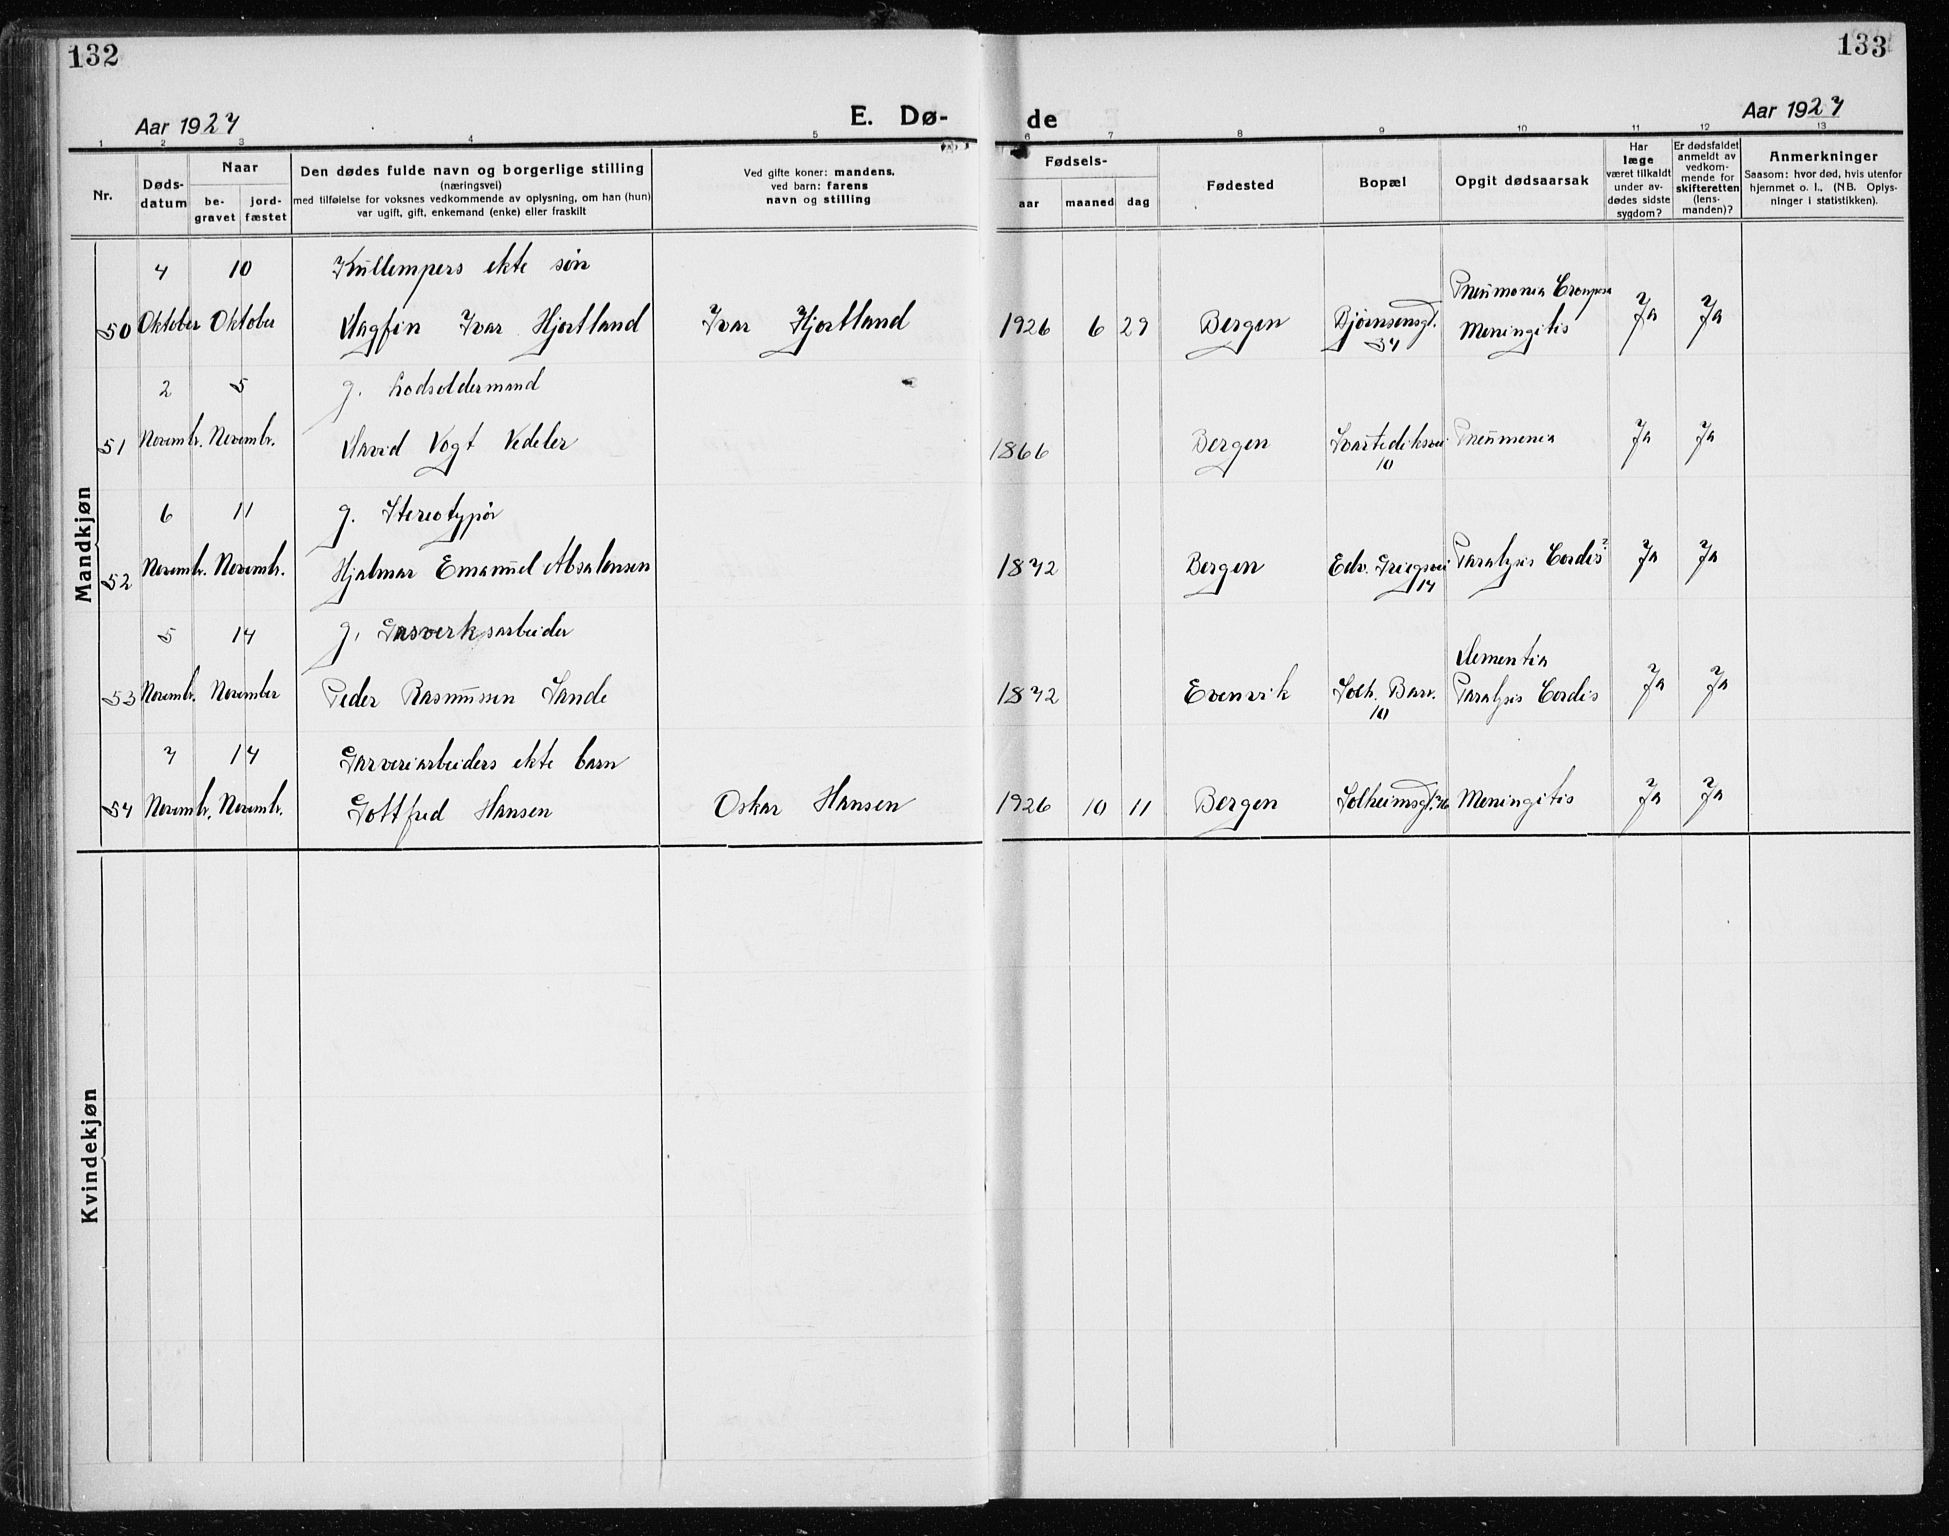 132
133
Aar 1927
E. Dø-
de
Aar 1927
1 2 3 4 5 6 7 8 9 10 11 12 13
Nr.
Døds-
datum
Naar
be-
gravet
jord-
fæstet
Den dødes fulde navn og borgerlige stilling
(næringsvei)
med tilføielse for voksnes vedkommende av oplysning, om han (hun)
var ugift, gift, enkemand (enke) eller fraskilt
Ved gifte koner: mandens,
ved barn: farens
navn og stilling
Fødsels-
aar maaned dag
Fødested
Bopæl
Opgit dødsaarsak
Har
læge
været tilkaldt
under av-
dødes sidste
sygdom?
Er dødsfaldet
anmeldt av
vedkom-
mende for
skifteretten
(lens-
manden)?
Anmerkninger
Saasom: hvor død, hvis utenfor
hjemmet o. l., (NB. Oplys-
ninger i statistikken).
Mandkjøn
4 10 Kullempers ekte søn
Pneumonia Crouposa
50 Oktober Oktober Dagfin Ivar Hjortland Ivar Hjortland 1926 6 29 Bergen Bjørnsonsgt. Meningitis Ja Ja
34
2 5 g. Lodsoldermand
51 Novembr. Novembr. David Vogt Vedeler 1866 Bergen Svartediksvei Pneumonia Ja Ja
10
6 11 g. Stereotypør
52 Novembr. Novembr. Hjalmar Emanuel Absalonsen 1872 Bergen Edv. Griegsvei Paralysis Cordis? Ja Ja
14
5 14 g. Gasverksarbeider
Dementia
53 Novembr. November Peder Rasmussen Sande 1872 Evenvik Solh. Barr. Paralysis Cordis Ja Ja
10
7 14 Garveriarbeiders ekte barn
54 Novembr. Novembr. Gottfred Hansen Oskar Hansen 1926 10 11 Bergen Solheimsgt. Meningitis Ja Ja
Kvindekjøn